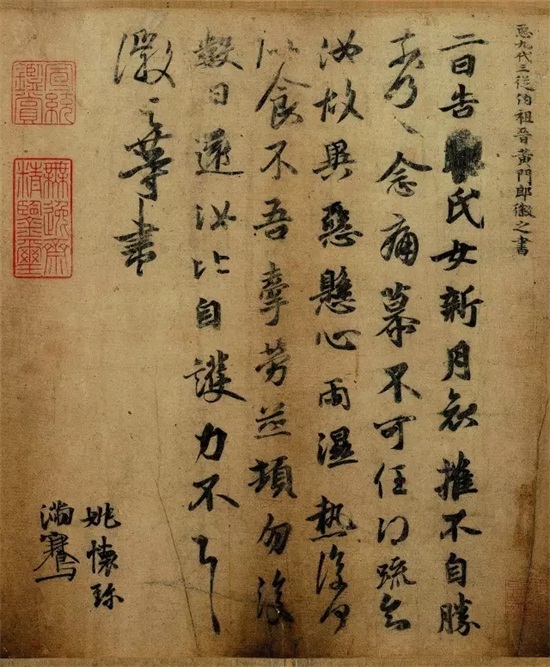 臣九代三從伯祖晉黃門郎徽之書
二日告氏女新月哀摧不自勝
奈何〻念痛慕不可任得疏知
汝故異惡懸心雨濕熱復何
似食不吾牽勞並頓勿復
數日還汝比自護力不具
徽之等書
姚懷珍
滿騫
宣統鑑賞
無逸齋精鑑璽